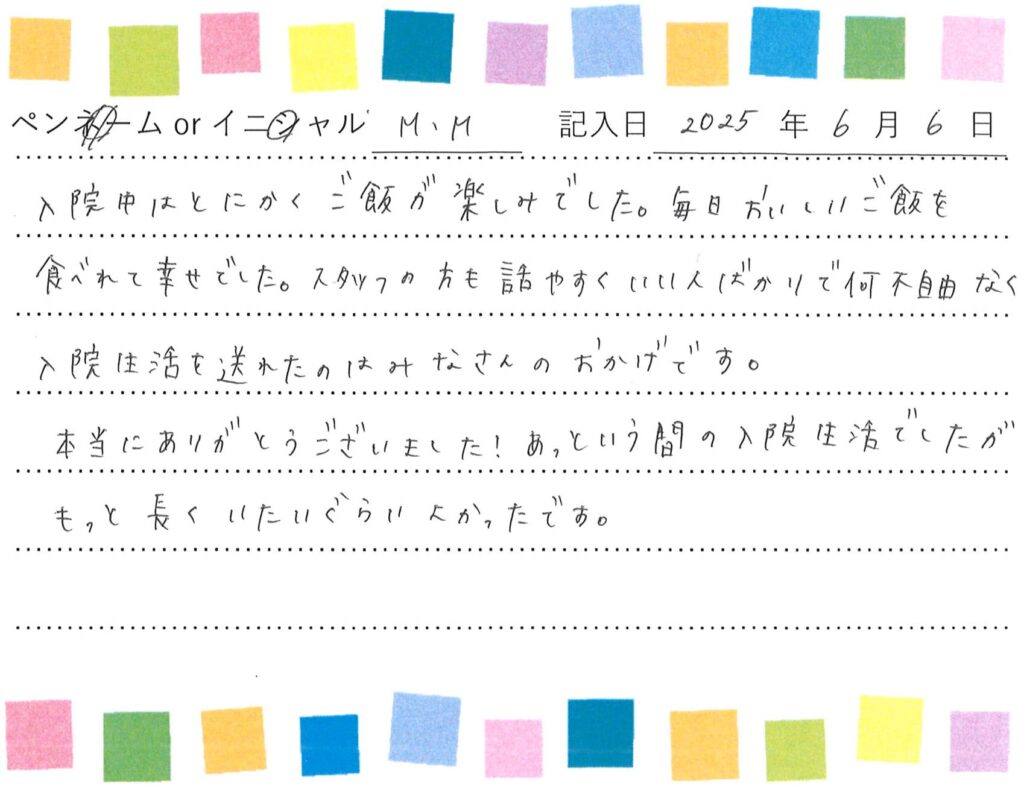 ペンネーム or イニシャル M、M 記入日 2025 年 6 月 6 日
入院中はとにかくご飯が楽しみでした。毎日おいしいご飯を
食べれて幸せでした。スタッフの方も話やすくいい人ばかりで何不自由なく
入院生活を送れたのはみなさんのおかげです。
本当にありがとうございました！あっという間の入院生活でしたが
もっと長くいたいぐらいよかったです。